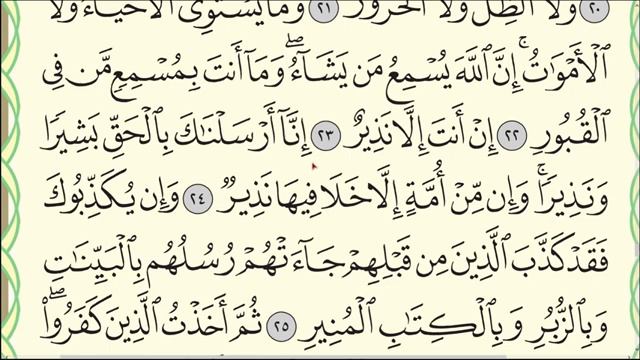 ٢٠ وَلَا ٱلظِّلُّ وَلَا ٱلْحَرُورُ ٢١ وَمَا يَسْتَوِى ٱلْأَحْيَآءُ وَلَا
ٱلْأَمْوَٰتُ ۚ إِنَّ ٱللَّهَ يُسْمِعُ مَن يَشَآءُ ۖ وَمَآ أَنتَ بِمُسْمِعٍ مَّن فِى
ٱلْقُبُورِ ٢٢ إِنْ أَنتَ إِلَّا نَذِيرٌ ٢٣ إِنَّآ أَرْسَلْنَٰكَ بِٱلْحَقِّ بَشِيرًا
وَنَذِيرًا ۚ وَإِن مِّنْ أُمَّةٍ إِلَّا خَلَا فِيهَا نَذِيرٌ ٢٤ وَإِن يُكَذِّبُوكَ
فَقَدْ كَذَّبَ ٱلَّذِينَ مِن قَبْلِهِمْ جَآءَتْهُمْ رُسُلُهُم بِٱلْبَيِّنَٰتِ
وَبِٱلزُّبُرِ وَبِٱلْكِتَٰبِ ٱلْمُنِيرِ ٢٥ ثُمَّ أَخَذْتُ ٱلَّذِينَ كَفَرُوا۟ ۖ